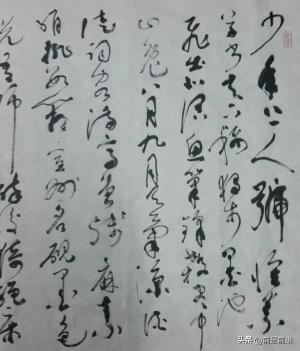 少年上人號懷素
草書天下稱獨步墨池
飛出北溟魚筆鋒殺盡中
山兔八月九月天氣涼酒
徒詞客滿高堂箋麻素
絹排數箱宣州石硯墨色
光吾師醉後倚繩床